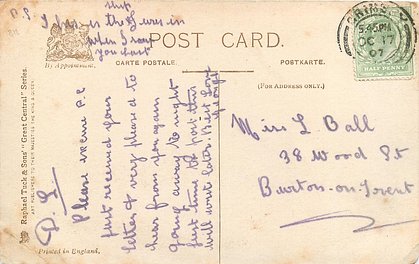 P.S.
ship
I was in the
when I saw
you last
By Appointment.
POST CARD.
CARTE POSTALE.
POSTKARTE.
(FOR ADDRESS ONLY.)
GRIMSBY
5.45 PM
OC 17
HALF PENNY
Raphael Tuck & Sons' "Great Central" Series.
ART PUBLISHERS TO THEIR MAJESTIES THE KING & QUEEN.
Printed in England.
Please excuse P.C
Just received your
letter & very pleased to
hear from you again
going away to night
Just time to post this
will write later. Best Love
Miss L Ball
38 Wood St
Burton-on-Trent